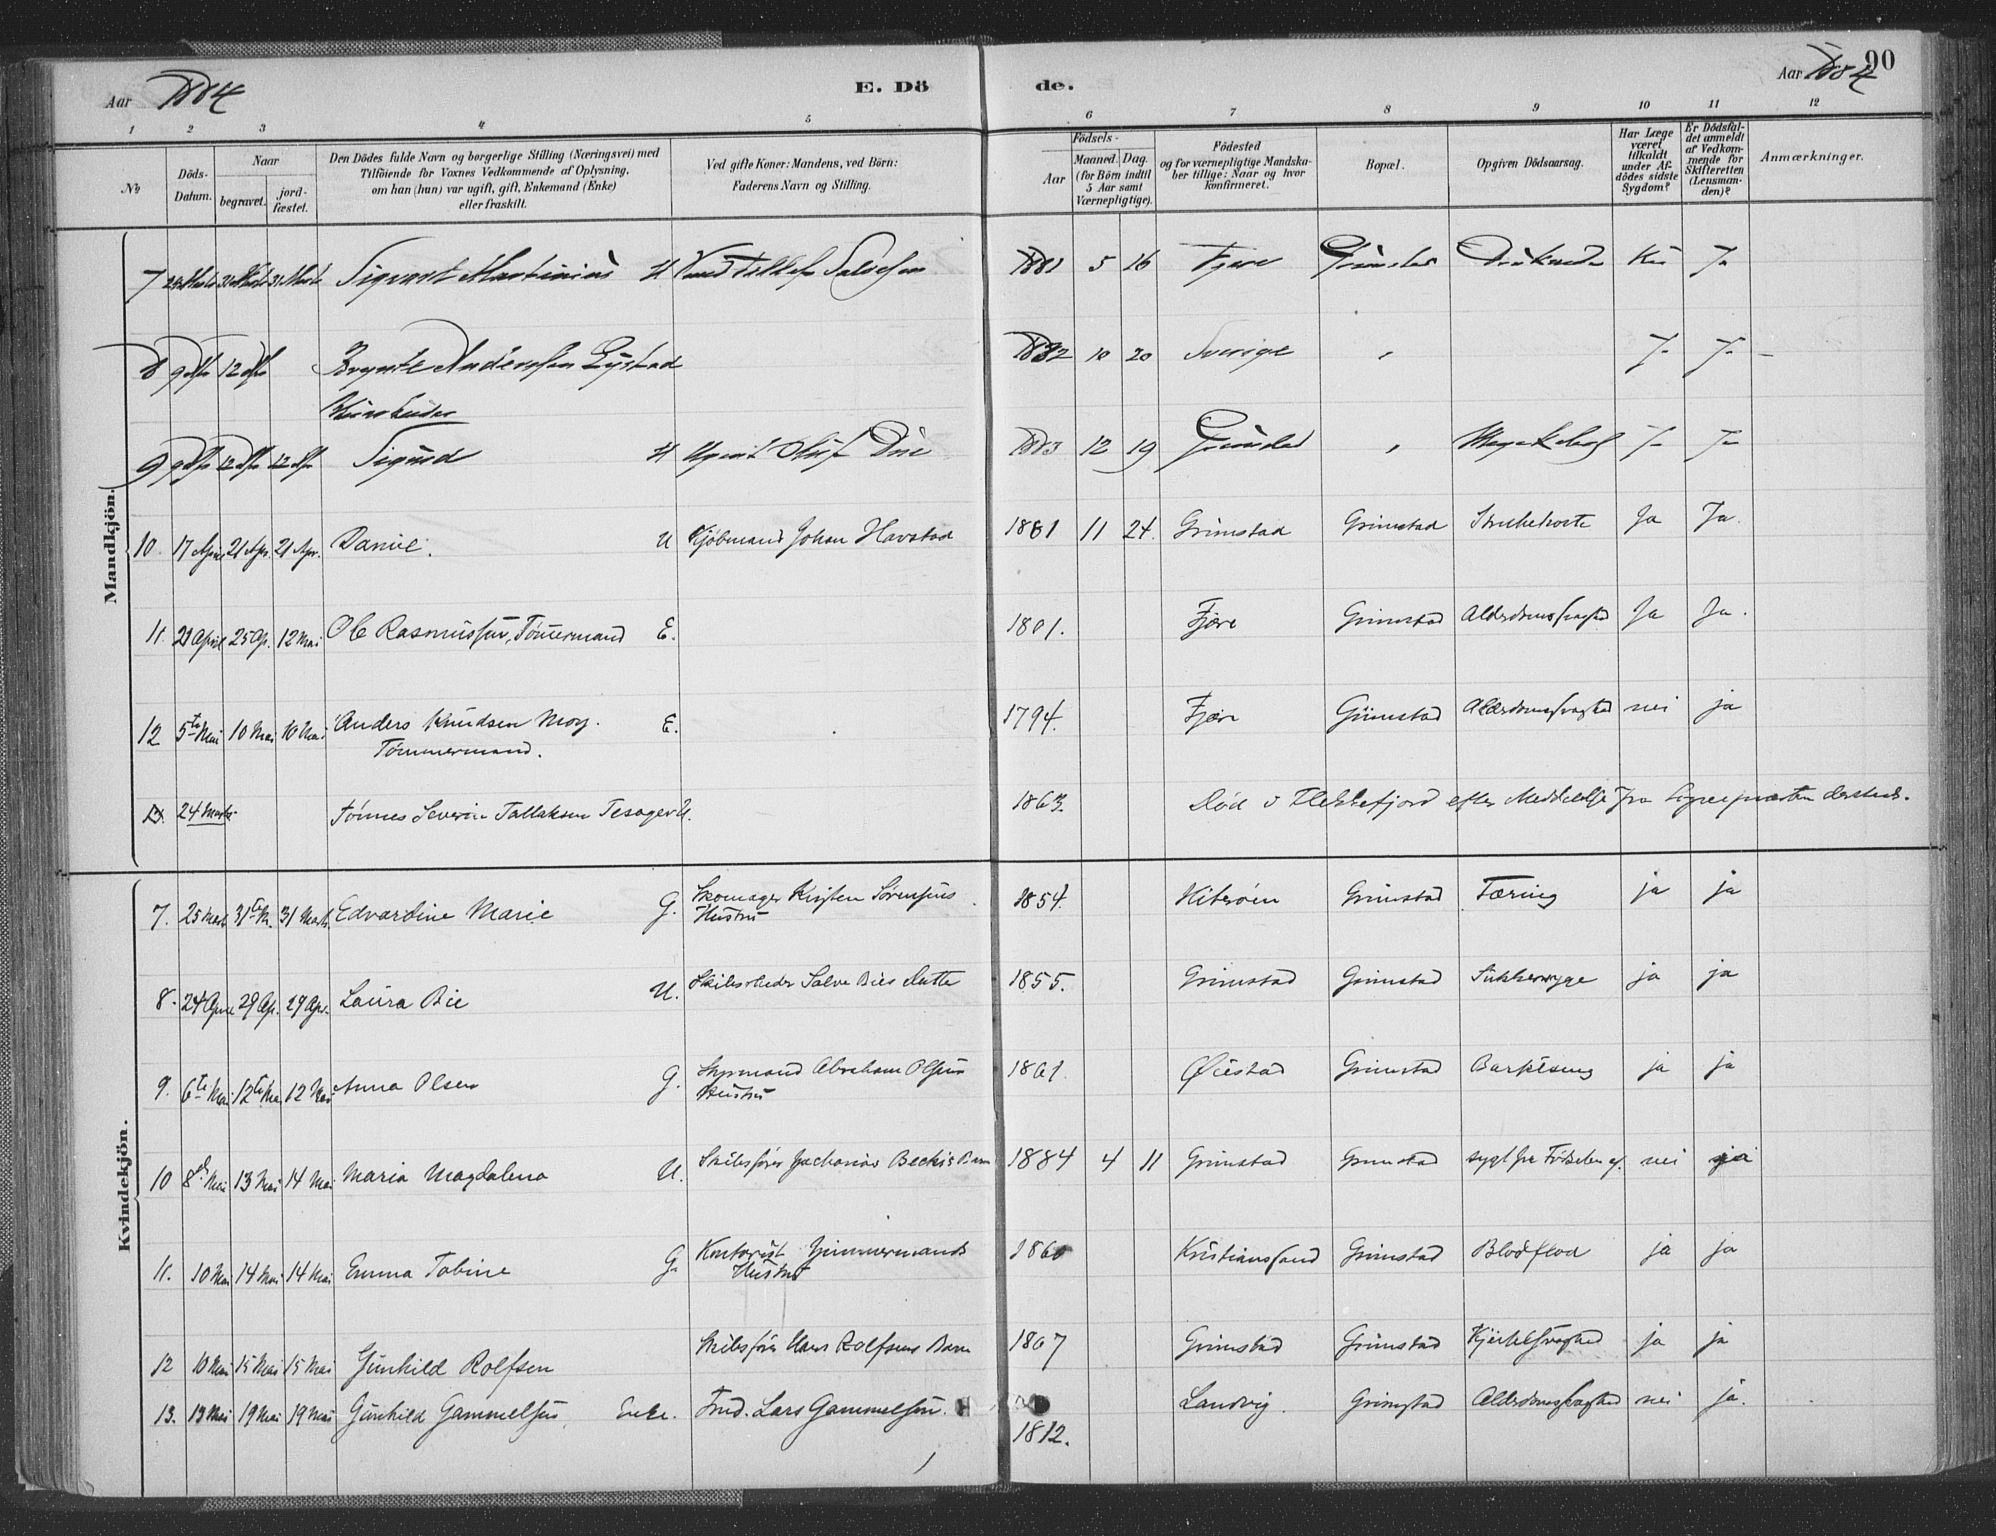 Aar 1884
E. Dö
de.
Aar 1884
90
1 2 3 4 5 6 7 8 9 10 11 12
№
Döds-Datum.
Naar
begravet.
jord-fæstet.
Den Dödes fulde Navn og borgerlige Stilling (Næringsvei) med
Tilföiende for Voxnes Vedkommende af Oplysning,
om han (hun) var ugift, gift, Enkemand (Enke)
eller fraskilt.
Ved gifte Koner: Mandens, ved Börn:
Faderens Navn og Stilling.
Födsels-
Aar
Maaned. Dag.
(for Börn indtil
5 Aar samt
Værnepligtige).
Födested
og for værnepligtige Mandska-
ber tillige: Naar og hvor
konfirmeret.
Bopæl.
Opgiven Dödsaarsag.
Har Læge
været
tilkaldt
under Af-
dödes sidste
Sygdom?
Er Dödsfal-
det anmeldt
af Vedkom-
mende for
Skifteretten
(Lensman-
den)?
Anmærkninger.
Mandkjön.
7 31 Marts Sigvart Martinius U 1881 5 16 Fjere Grimstad Ja
8 9 Apr 12 Apr Andersson 1832 10 20 Sverige " Ja Ja
9 9 Apr 12 Apr 12 Apr Sigurd U Agent Oluf Due 1883 12 19 Grimstad " Ja Ja
10. 17 April 21 Apr. 21 Apr. Daniel. U Kjøbmand Johan Havstad 1881 11 24. Grimstad Grimstad Strubehoste Ja Ja.
11. 21 April 25 Ap. 12 Mai Ole Rasmussen, Tømmermand E. 1801. Fjære Grimstad Alderdomssvaghed Ja Ja.
12 5te Mai 10 Mai 10 Mai Anders Knudsen Moy. E. 1794. Fjære Grimstad Alderdomssvaghed nei ja
Tømmermand.
24 Marts Tønnes Severin Tallaksen U. 1863. Död i Flekkefjord efter Meddelelse fra Sognepræsten dersteds.
Kvindekjön.
7. 25 Marts 31te M. 31 Marts Edvardine Marie G. Skomager Kristen Sørensens 1854. Hiterøen Grimstad Tæring ja ja
Hustru
8. 24 April 29 Ap. 29 Apr. Laura Bie U. Skibsreder Salve Bies Datter 1855. Grimstad Grimstad Sukkersyge ja ja
9. 6te Mai 12te Mai 12 Mai Anna Olsen G. Styrmand Abraham Olsens 1861. Øiestad Grimstad Barselseng ja ja
Hustru
10 8de Mai 13 Mai 14 Mai Maria Magdalena U. Skibsfører Zacharias Beckis Barn 1884 4 11 Grimstad Grimstad sygt fra Fødselen af. nei ja
11. 10 Mai 14 Mai 14 Mai Emma Tobine G. Kontorist Zimmermands 1860 Kristianssand Grimstad Blodflod ja ja
Hustru
12 10 Mai 15 Mai 15 Mai Gunhild Rolfsen Skibsfører Hans Rolfsens Barn 1867 Grimstad Grimstad ja ja
13. 13 Mai 19 Mai 19 Mai Gunhild Gammelsen, Enke. Lars Gammelsen. Landvig. Grimstad Alderdomssvaghed nei ja.
1812.